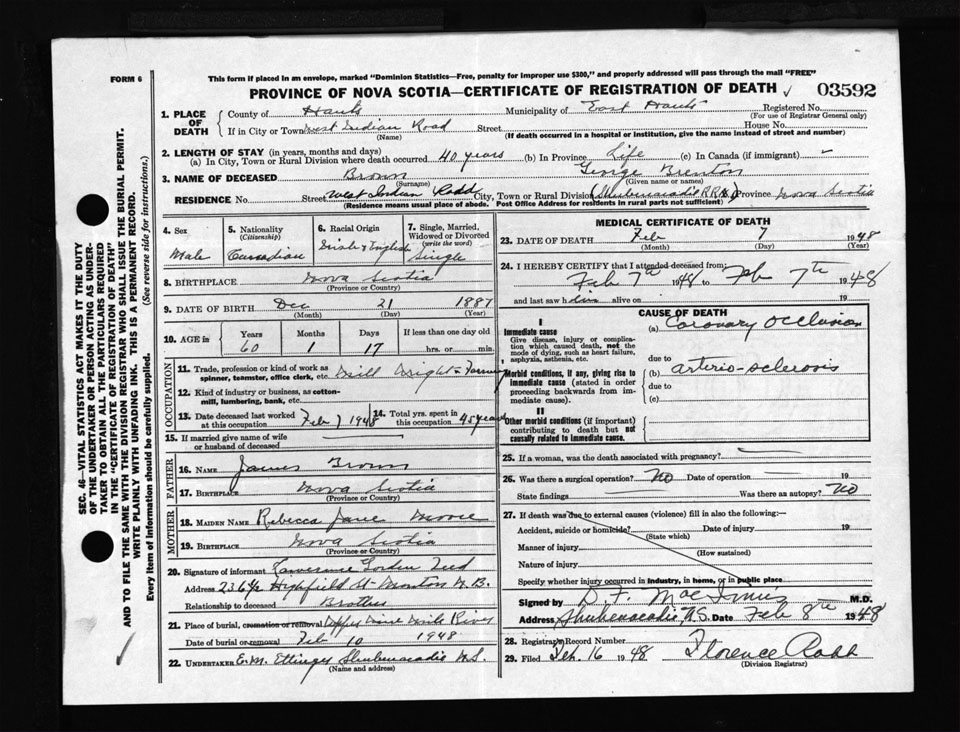 FORM 6
This form if placed in an envelope, marked "Dominion Statistics—Free, penalty for improper use $300," and properly addressed will pass through the mail "FREE"
PROVINCE OF NOVA SCOTIA—CERTIFICATE OF REGISTRATION OF DEATH ✓ 03592
1. PLACE OF DEATH
County of Hants Municipality of East Hants Registered No.
(For use of Registrar General only)
If in City or Town West Indian Road Street House No.
(Name) (If death occurred in a hospital or institution, give the name instead of street and number)
2. LENGTH OF STAY (in years, months and days)
(a) In City, Town or Rural Division where death occurred 40 years (b) In Province Life (c) In Canada (if immigrant) –
3. NAME OF DECEASED Brown George
(Surname) (Given name or names)
RESIDENCE No. Street West Indian Road City, Town or Rural Division (Shubenacadie R.R. ) Province Nova Scotia
(Residence means usual place of abode. Post Office Address for residents in rural parts not sufficient)
4. Sex Male
5. Nationality (Citizenship) Canadian
6. Racial Origin Irish & English
7. Single, Married, Widowed or Divorced (write the word) Single
8. BIRTHPLACE Nova Scotia
(Province or Country)
9. DATE OF BIRTH Dec 21 1887
(Month) (Day) (Year)
10. AGE in Years 60 Months 1 Days 17 If less than one day old hrs. or min.
OCCUPATION
11. Trade, profession or kind of work as spinner, teamster, office clerk, etc. Mill Wright – Farming
12. Kind of industry or business, as cotton-mill, lumbering, bank, etc.
13. Date deceased last worked at this occupation Feb 7 1948
14. Total yrs. spent in this occupation 45 years
15. If married give name of wife or husband of deceased
FATHER
16. NAME James Brown
17. BIRTHPLACE Nova Scotia
(Province or Country)
MOTHER
18. MAIDEN NAME Rebecca Jane Moore
19. BIRTHPLACE Nova Scotia
(Province or Country)
20. Signature of informant Gordon
Address 236½ Highfield St Moncton N.B.
Relationship to deceased Brother
21. Place of burial, cremation or removal Upper Nine Mile River
Date of burial or removal Feb 10 1948
22. UNDERTAKER E.M. Ettinger Shubenacadie N.S.
(Name and address)
MEDICAL CERTIFICATE OF DEATH
23. DATE OF DEATH Feb 7 1948
(Month) (Day) (Year)
24. I HEREBY CERTIFY that I attended deceased from:
Feb 7th 1948 to Feb 7th 1948
and last saw him alive on 19
CAUSE OF DEATH
I
Immediate cause
Give disease, injury or complication which caused death, not the mode of dying, such as heart failure, asphyxia, asthenia, etc.
(a) Coronary Occlusion
due to
Morbid conditions, if any, giving rise to immediate cause (stated in order proceeding backwards from immediate cause).
(b) arterio-sclerosis
due to
(c)
II
Other morbid conditions (if important) contributing to death but not causally related to immediate cause.
25. If a woman, was the death associated with pregnancy?
26. Was there a surgical operation? No Date of operation 19
State findings Was there as autopsy? No
27. If death was due to external causes (violence) fill in also the following:—
Accident, suicide or homicide? Date of injury 19
(State which)
Manner of injury
(How sustained)
Nature of injury
Specify whether injury occurred in industry, in home, or in public place
Signed by D. F. MacInnis M.D.
Address Shubenacadie, N.S. Date Feb 8th 1948
28. Registrar's Record Number
29. Filed Feb. 16 1948 Florence
(Division Registrar)
SEC. 46—VITAL STATISTICS ACT MAKES IT THE DUTY
OF THE UNDERTAKER OR PERSON ACTING AS UNDER-
TAKER TO OBTAIN ALL THE PARTICULARS REQUIRED
IN THE "CERTIFICATE OF REGISTRATION OF DEATH"
AND TO FILE THE SAME WITH THE DIVISION REGISTRAR WHO SHALL ISSUE THE BURIAL PERMIT.
WRITE PLAINLY WITH UNFADING INK. THIS IS A PERMANENT RECORD.
Every item of information should be carefully supplied. (See reverse side for instructions.)